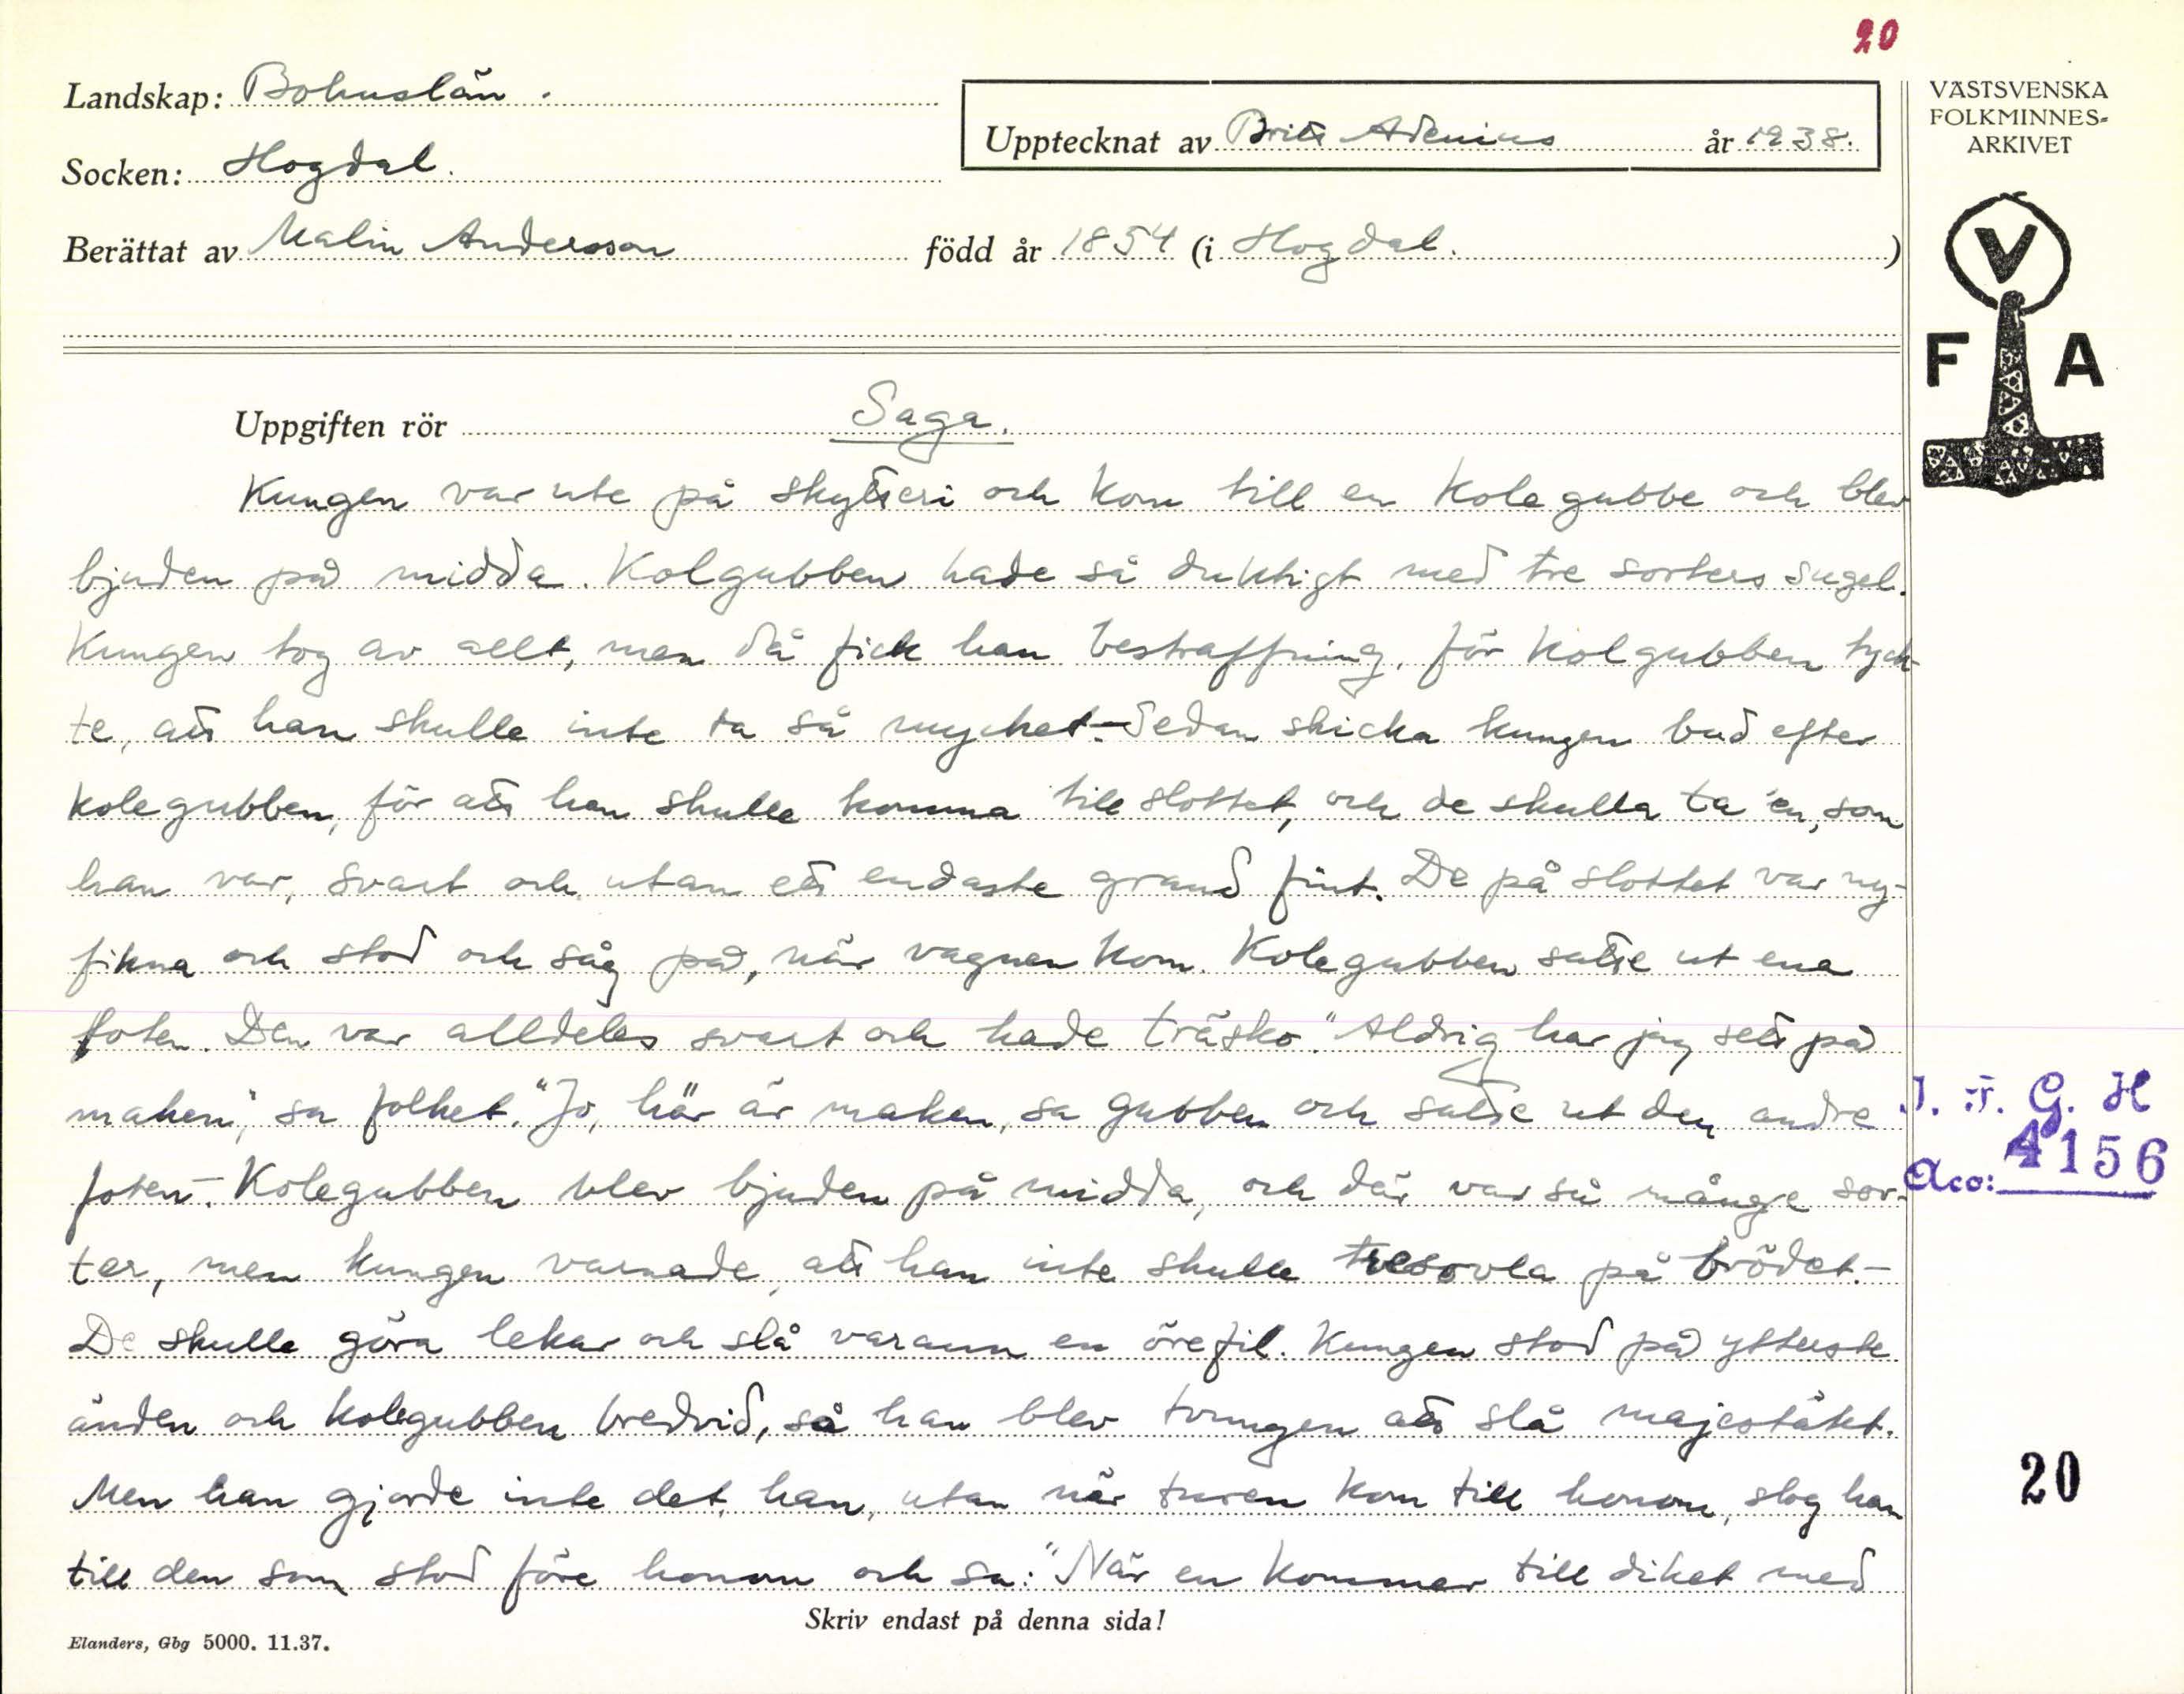 20
Landskap: Bohuslän.
Upptecknat av Britt Adenius år 1938.
VÄSTSVENSKA
FOLKMINNES-
ARKIVET
Socken: Hogdal.
Berättat av Malin Andersson född år 1854 (i Hogdal.)
V
F A
Uppgiften rör Saga.
Kungen var ute på skytteri och kom till en kolegubbe och blev
bjuden på midda. Kolgubben hade så duktigt med tre sorters sugel.
Kungen tog av allt, men då fick han bestraffning, för kolgubben tyck-
te, att han skulle inte ta så mychet.- Sedan skicka kungen bud efter
kolegubben, för att han skulle komma till slottet, och de skulla ta 'en, som
han var, svart och utan ett endaste grand fint. De på slottet var ny-
fikna och stod och såg på, när vagnen kom. Kolegubben satte ut ena
foten. Den var alldeles svart och hade träsko. "Aldrig har jag sett på
maken", sa folket. "Jo, här är maken, sa gubben och satte ut den andre
foten.- Kolegubben blev bjuden på midda, och där var så månge sor-
ter, men kungen varnade, att han inte skulle tresovla på brödet.-
De skulle göra lekar och slå varann en örefil. Kungen stod på ytterste
änden och kolegubben bredvid, så han blev tvungen att slå majestätet.
Men han gjorde inte det, han, utan när turen kom till honom, slog han
till den som stod före honom och sa: "När en kommer till diket med
J. F. G. H
Acc: 4156
20
Skriv endast på denna sida!
Elanders, Gbg 5000. 11.37.